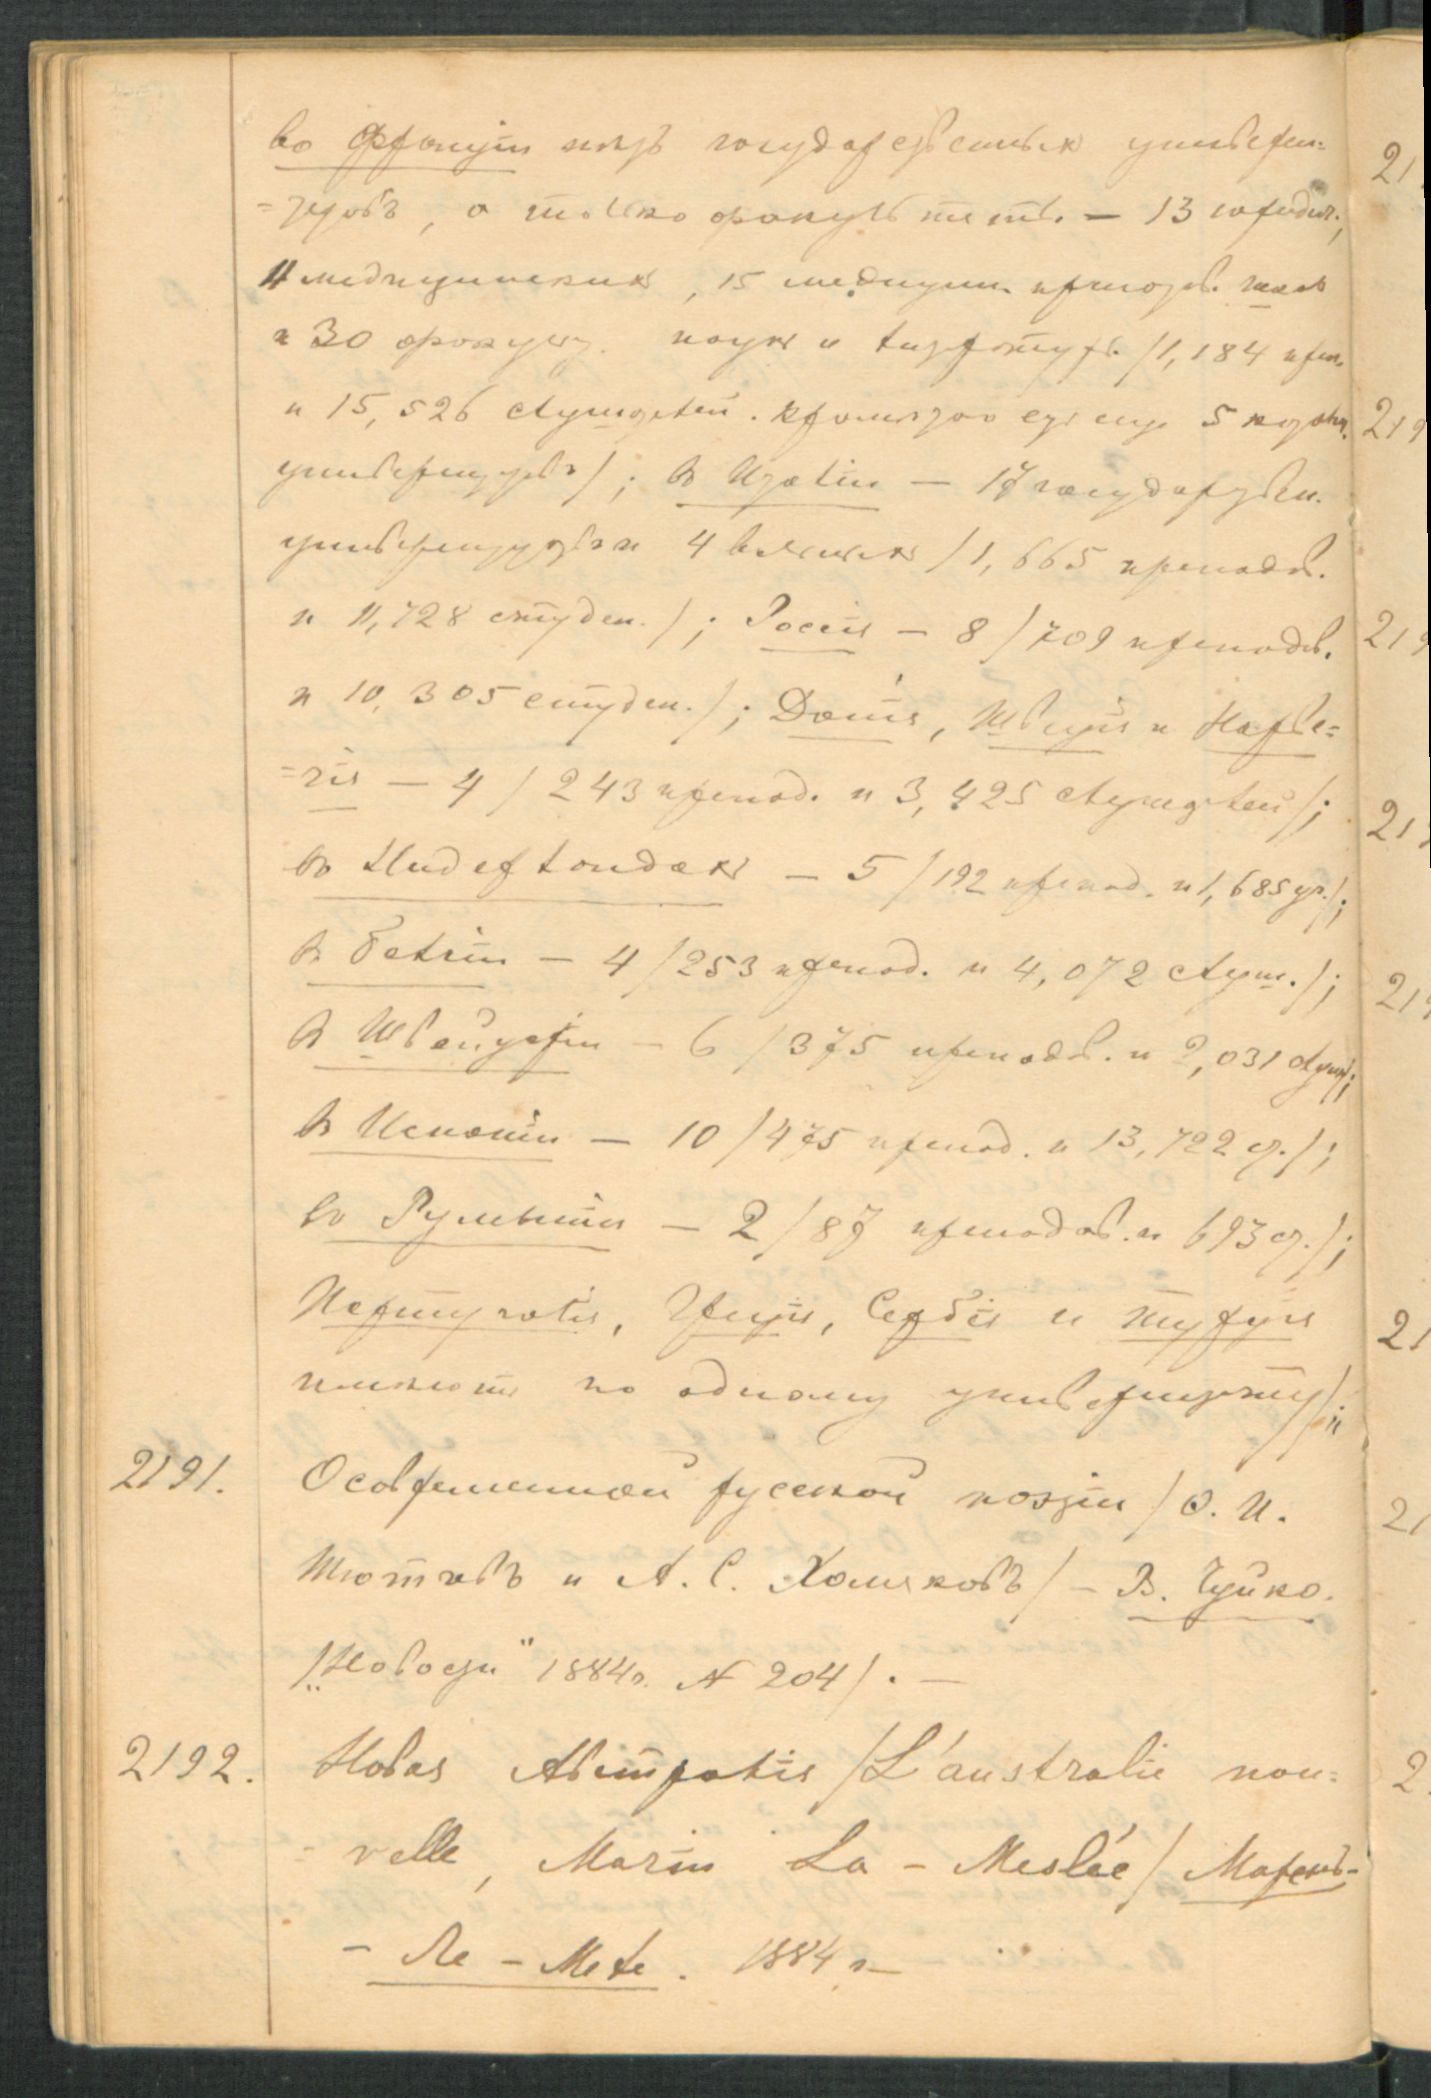 во Франціи нѣтъ государственных универси=
=тетовъ, а только факультеты — 13 юридич.,
4 медицинских, 15 медицин. пригот. школ
и 30 факульт. наук и литератур. /1,184 преп.
и 15,526 слушателей. Кромѣ того есть еще 5 католич.
университетовъ/; в Италіи — 17 государствен.
университетовъ и 4 вольных /1,665 преподав.
и 11,728 студен./; Россія — 8 /709 преподав.
и 10,305 студен./; Данія, Швеція и Норве=
=гія — 4 /243 препод. и 3,425 слушателей/;
в Нидерландах — 5 /192 препод. и 1,685 ст./;
в Бельгіи — 4 /253 препод. и 4,072 слуш./;
в Швейцаріи — 6 /375 преподав. и 2,031 слуш/;
в Испаніи — 10 /475 препод. и 13,722 ст./;
в Румыніи — 2 /87 преподав. и 693 ст./;
Португалія, Греція, Сербія и Турція
имѣют по одному университету/;
2191. О современной русской поэзіи /Ѳ. И.
Тютчевъ и А. С. Хомяковъ/ — В. Чуйко.
/„Новости" 1884г. № 204/. —
2192. Новая Австралія /L'australie nou=
=velle, Marin La-Meslée/ Марень-
-Ле-Меле. 1884 г—